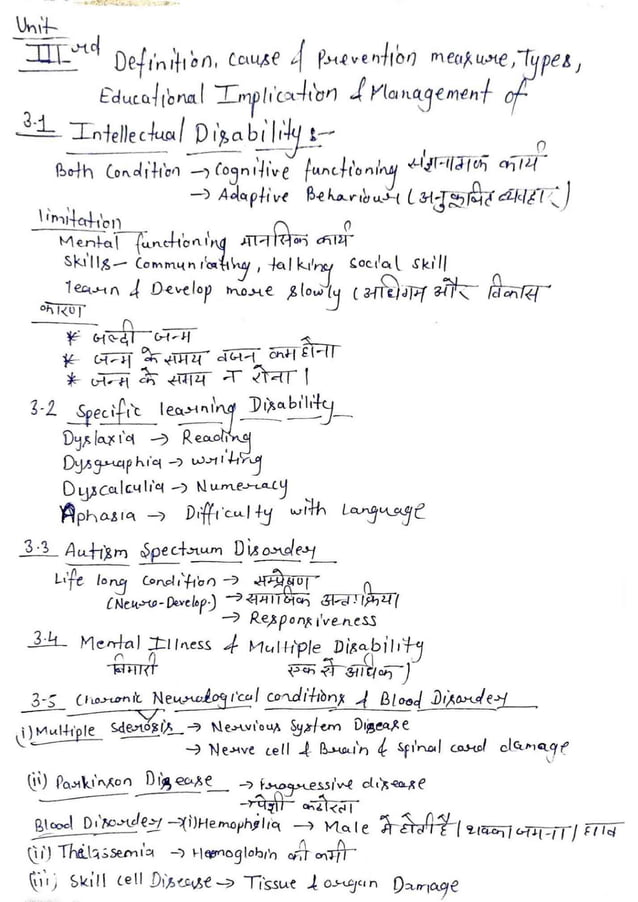 Unit
IIIrd Definition, cause & Prevention measure, Types,
Educational Implication & Management of
3.1 Intellectual Disability :-
Both Condition → Cognitive functioning संज्ञानात्मक कार्य
→ Adaptive Behaviour (अनुकूलित व्यवहार)
limitation
Mental functioning मानसिक कार्य
Skills - Communicating, talking social skill
learn & Develop more slowly (अधिगम और विकास
कारण
* जल्दी जन्म
* जन्म के समय वजन कम होना
* जन्म के समय न रोना।
3.2 Specific learning Disability
Dyslaxia → Reading
Dysgraphia → writing
Dyscalculia → Numeracy
Aphasia → Difficulty with Language
3.3 Autism Spectrum Disorder
Life long Condition → सम्प्रेषण
(Neuro-Develop.) → सामाजिक अन्तःक्रिया
→ Responsiveness
3.4 Mental Illness & Multiple Disability
बिमारी एक से अधिक)
3.5 Charonic Neurological conditions & Blood Disorder
(i) Multiple Sderosis → Nervious System Disease
→ Nerve cell & Brain & Spinal card damage
(ii) Parkinson Disease → Progressive disease
→ पेशी कठोरता
Blood Disorder → (i) Hemophilia → Male में होती है। थक्का जमना।
(ii) Thelassemia → Hemoglobin की कमी
(iii) Skill cell Disease → Tissue & organ Damage